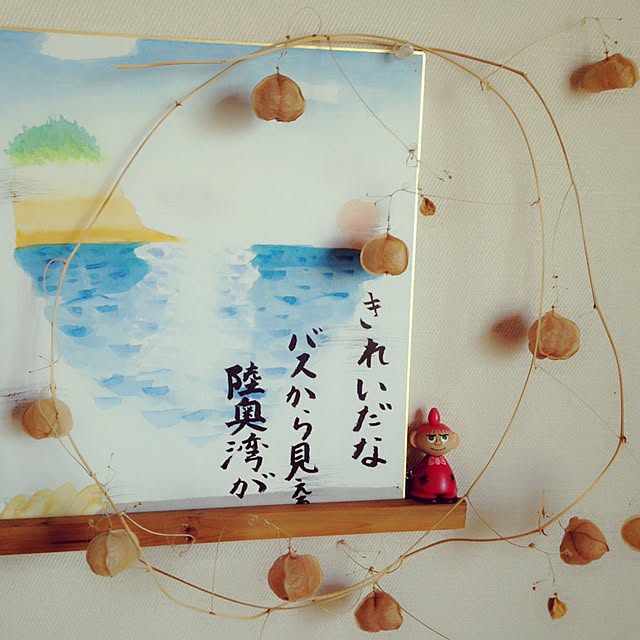 きれいだな
バスから見え
陸奥湾が